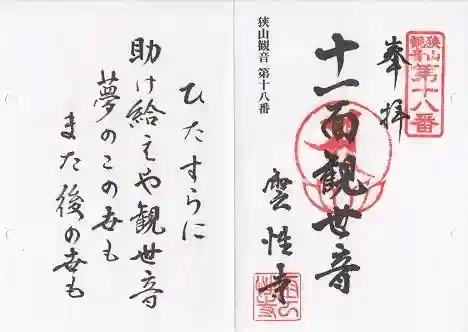 狭山観音
第十八番
奉拝
十一面観世音
雲性寺
狭山観音 第十八番
ひたすらに
助け給えや観世音
夢のこの世も
また後の世も